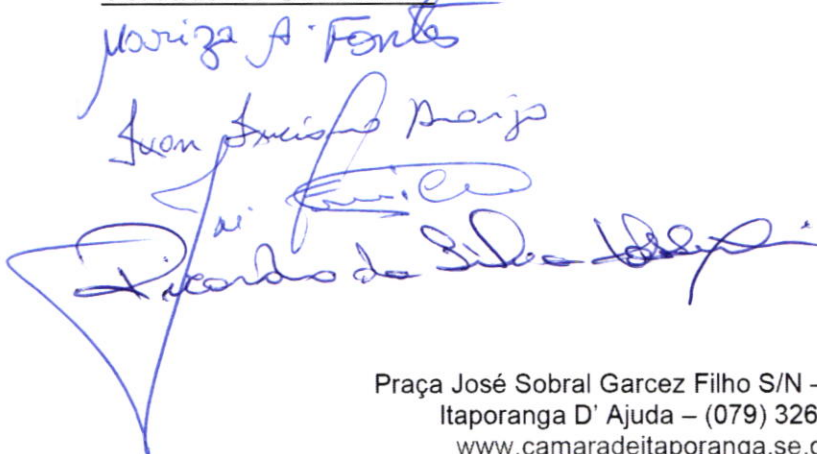 Mariza A. Fontes
Ivan Luciano Araujo
Ricardo da Silva
Praça José Sobral Garcez Filho S/N –
Itaporanga D' Ajuda – (079) 326
www.camaradeitaporanga.se.g